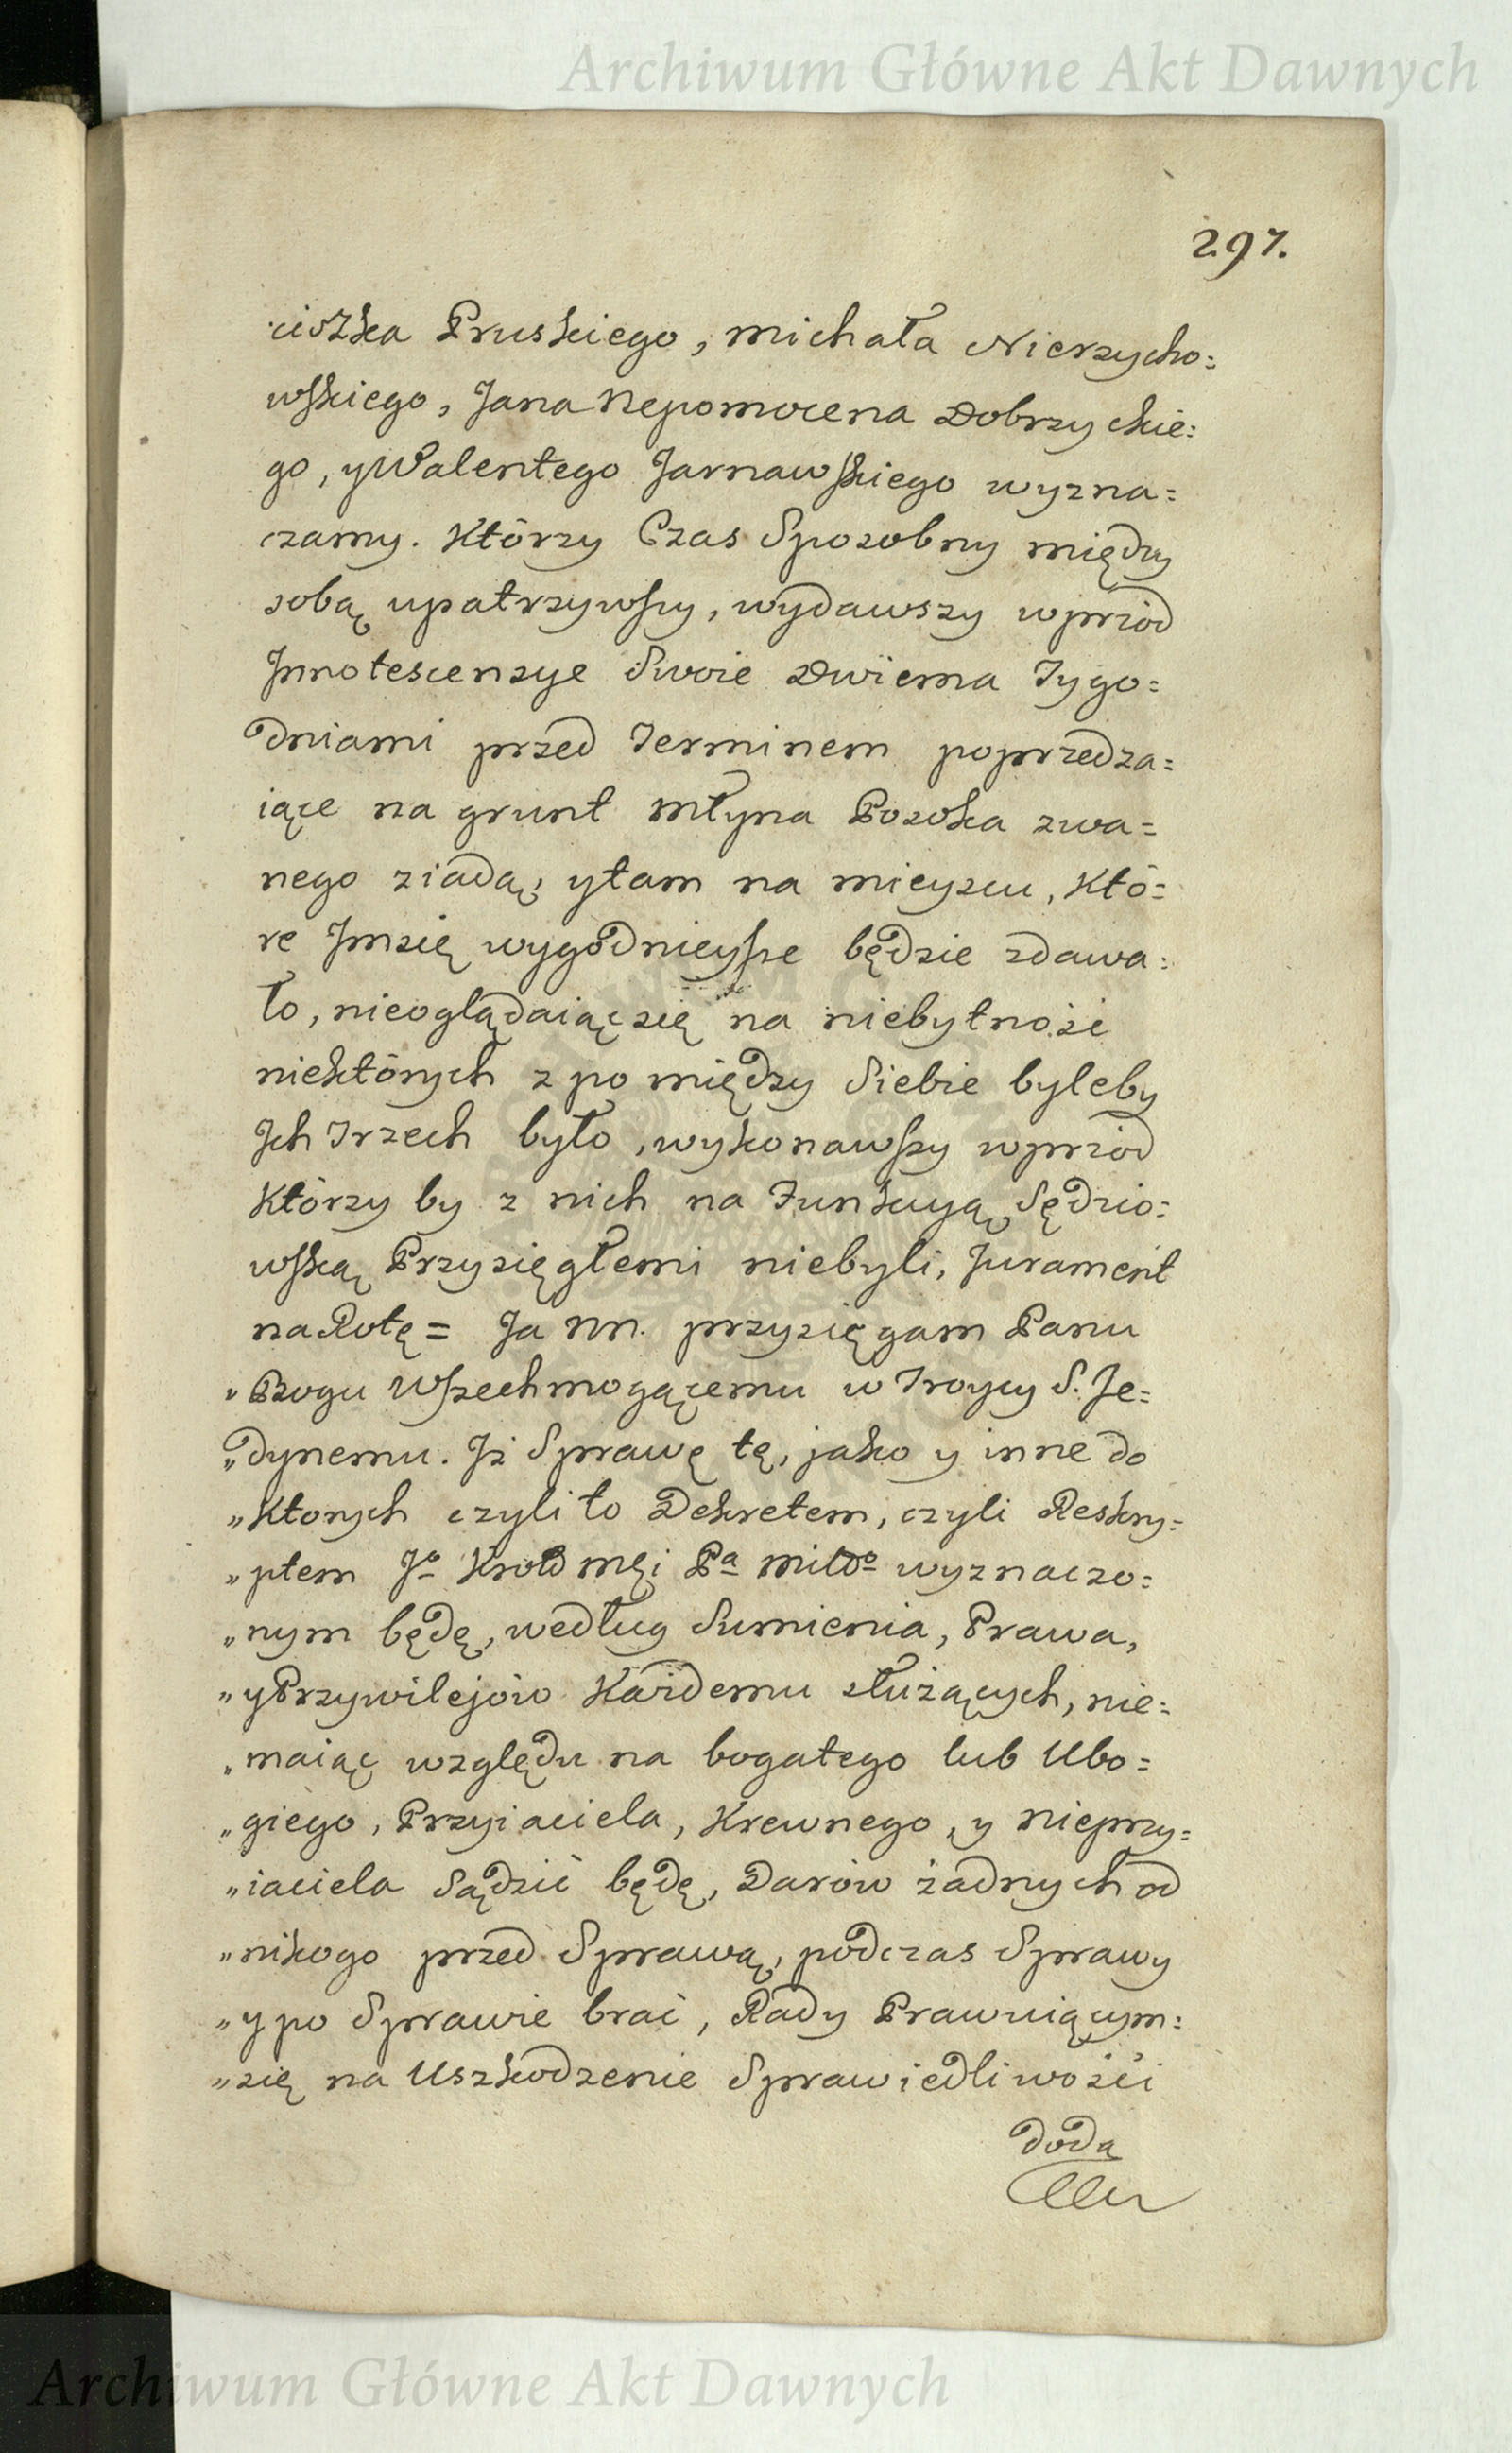 Archiwum Główne Akt Dawnych
297.
ciszka Pruskiego, Michała Nierzycho=
wskiego, Jana Nepomocena Dobrzyckie=
go, y Walentego Jarnawskiego wyzna=
czamy. Którzy Czas Sposobny między
sobą upatrzywszy, wydawszy wprzód
Jnnotescensye Swoie Dwiema Tygo=
dniami przed Terminem poprzedza=
iące na grunt Młyna Posoka zwa=
nego ziadą, y tam na mieyscu, Któ=
re Jm się wygodnieysze będzie zdawa=
ło, nieoglądaiąc się na niebytność
niektórych z po między Siebie byleby
Jch Trzech było, wykonawszy wprzód
Którzy by z nich na Funkcyą Sędzio=
wską Przysięgłemi niebyli, Jurament
na Rotę = Ja NN. przysięgam Panu
„Bogu Wszechmogącemu w Troycy S. Je=
„dynemu. Jż Sprawę tę, jako y inne do
„Ktorych czyli to Dekretem, czyli Reskry=
„ptem Jo Krold mći Pa miłdo wyznaczo=
„nym będę, według Sumienia, Prawa,
„y Przywilejów Każdemu służących, nie=
„maiąc względu na bogatego lub Ubo=
„giego, Przyiaciela, Krewnego, y nieprzy=
„iaciela Sądzić będę, Darów żadnych od
„nikogo przed Sprawą, podczas Sprawy
„y po Sprawie brać, Rady Prawuiącym=
„się na Uszkodzenie Sprawiedliwości
doda
Archiwum Główne Akt Dawnych